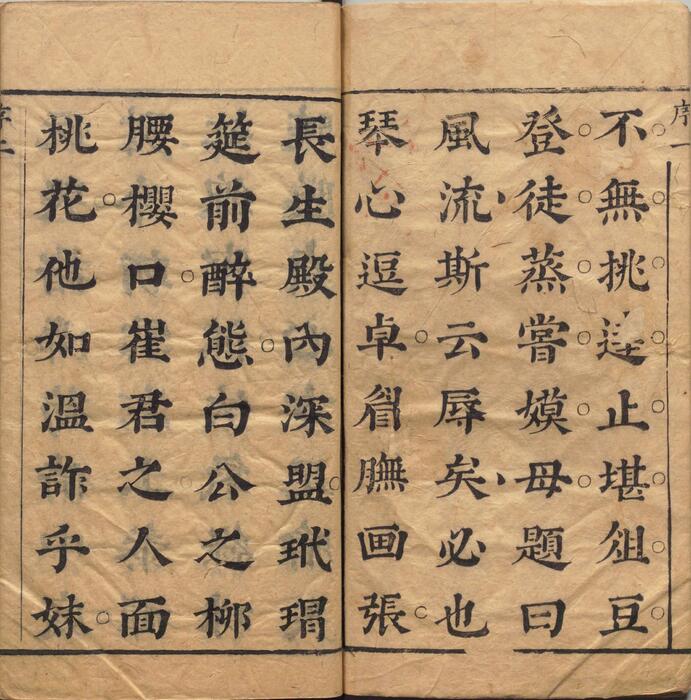 序一
不無挑達止堪俎豆
登徒蒸嘗嫫母題曰
風流斯云辱矣必也
琴心逗卓眉膴画張
長生殿內深盟玳瑁
筵前醉態白公之柳
腰櫻口崔君之人面
桃花他如溫詐乎妹
序二